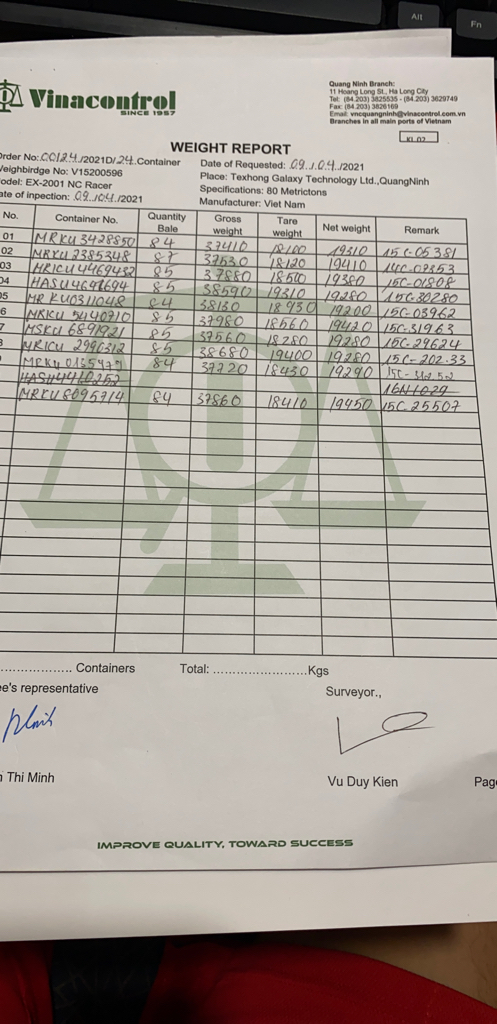 Alt
Fn
Vinacontrol
SINCE 1957
Quang Ninh Branch:
11 Hoang Long St., Ha Long City
Tel: (84.203) 3825535 - (84.203) 3629749
Fax: (84.203) 3826169
Email: vncquangninh@vinacontrol.com.vn
Branches in all main ports of Vietnam
WEIGHT REPORT
Order No: /2021D/24 Container
Date of Requested: 09/04/2021
Weighbirdge No: V15200596
Place: Texhong Galaxy Technology Ltd.,QuangNinh
odel: EX-2001 NC Racer
Specifications: 80 Metrictons
ate of inpection: 09/04/2021
Manufacturer: Viet Nam
No. Container No. Quantity Bale Gross weight Tare weight Net weight Remark
01 MRKU 3428850 84 37410 18100 19310 15C-05381
02 MRKU 2385348 87 37530 18120 19410
03 85 37880 18500 19380 15C-01808
04 85 38590 19310 19280 15C-30280
05 84 38130 18930 19200 15C-03962
6 MRKU 5440710 85 37980 18560 19420 15C-31963
7 MSKU 6891921 85 37560 18280 19280 15C-29624
MRKU 2996312 85 38680 19400 19280 15C-202.33
MRKU 0135479 84 37720 18430 19290
MRKU 8095714 84 37860 18410 19450 15C-25507
Containers Total: Kgs
ee's representative Surveyor.,
Thi Minh Vu Duy Kien Page
IMPROVE QUALITY, TOWARD SUCCESS